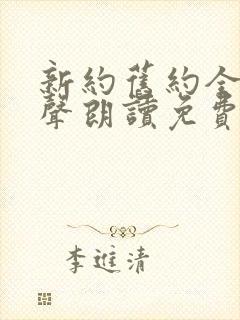 新約舊約全
聲朗讀免費
李進清